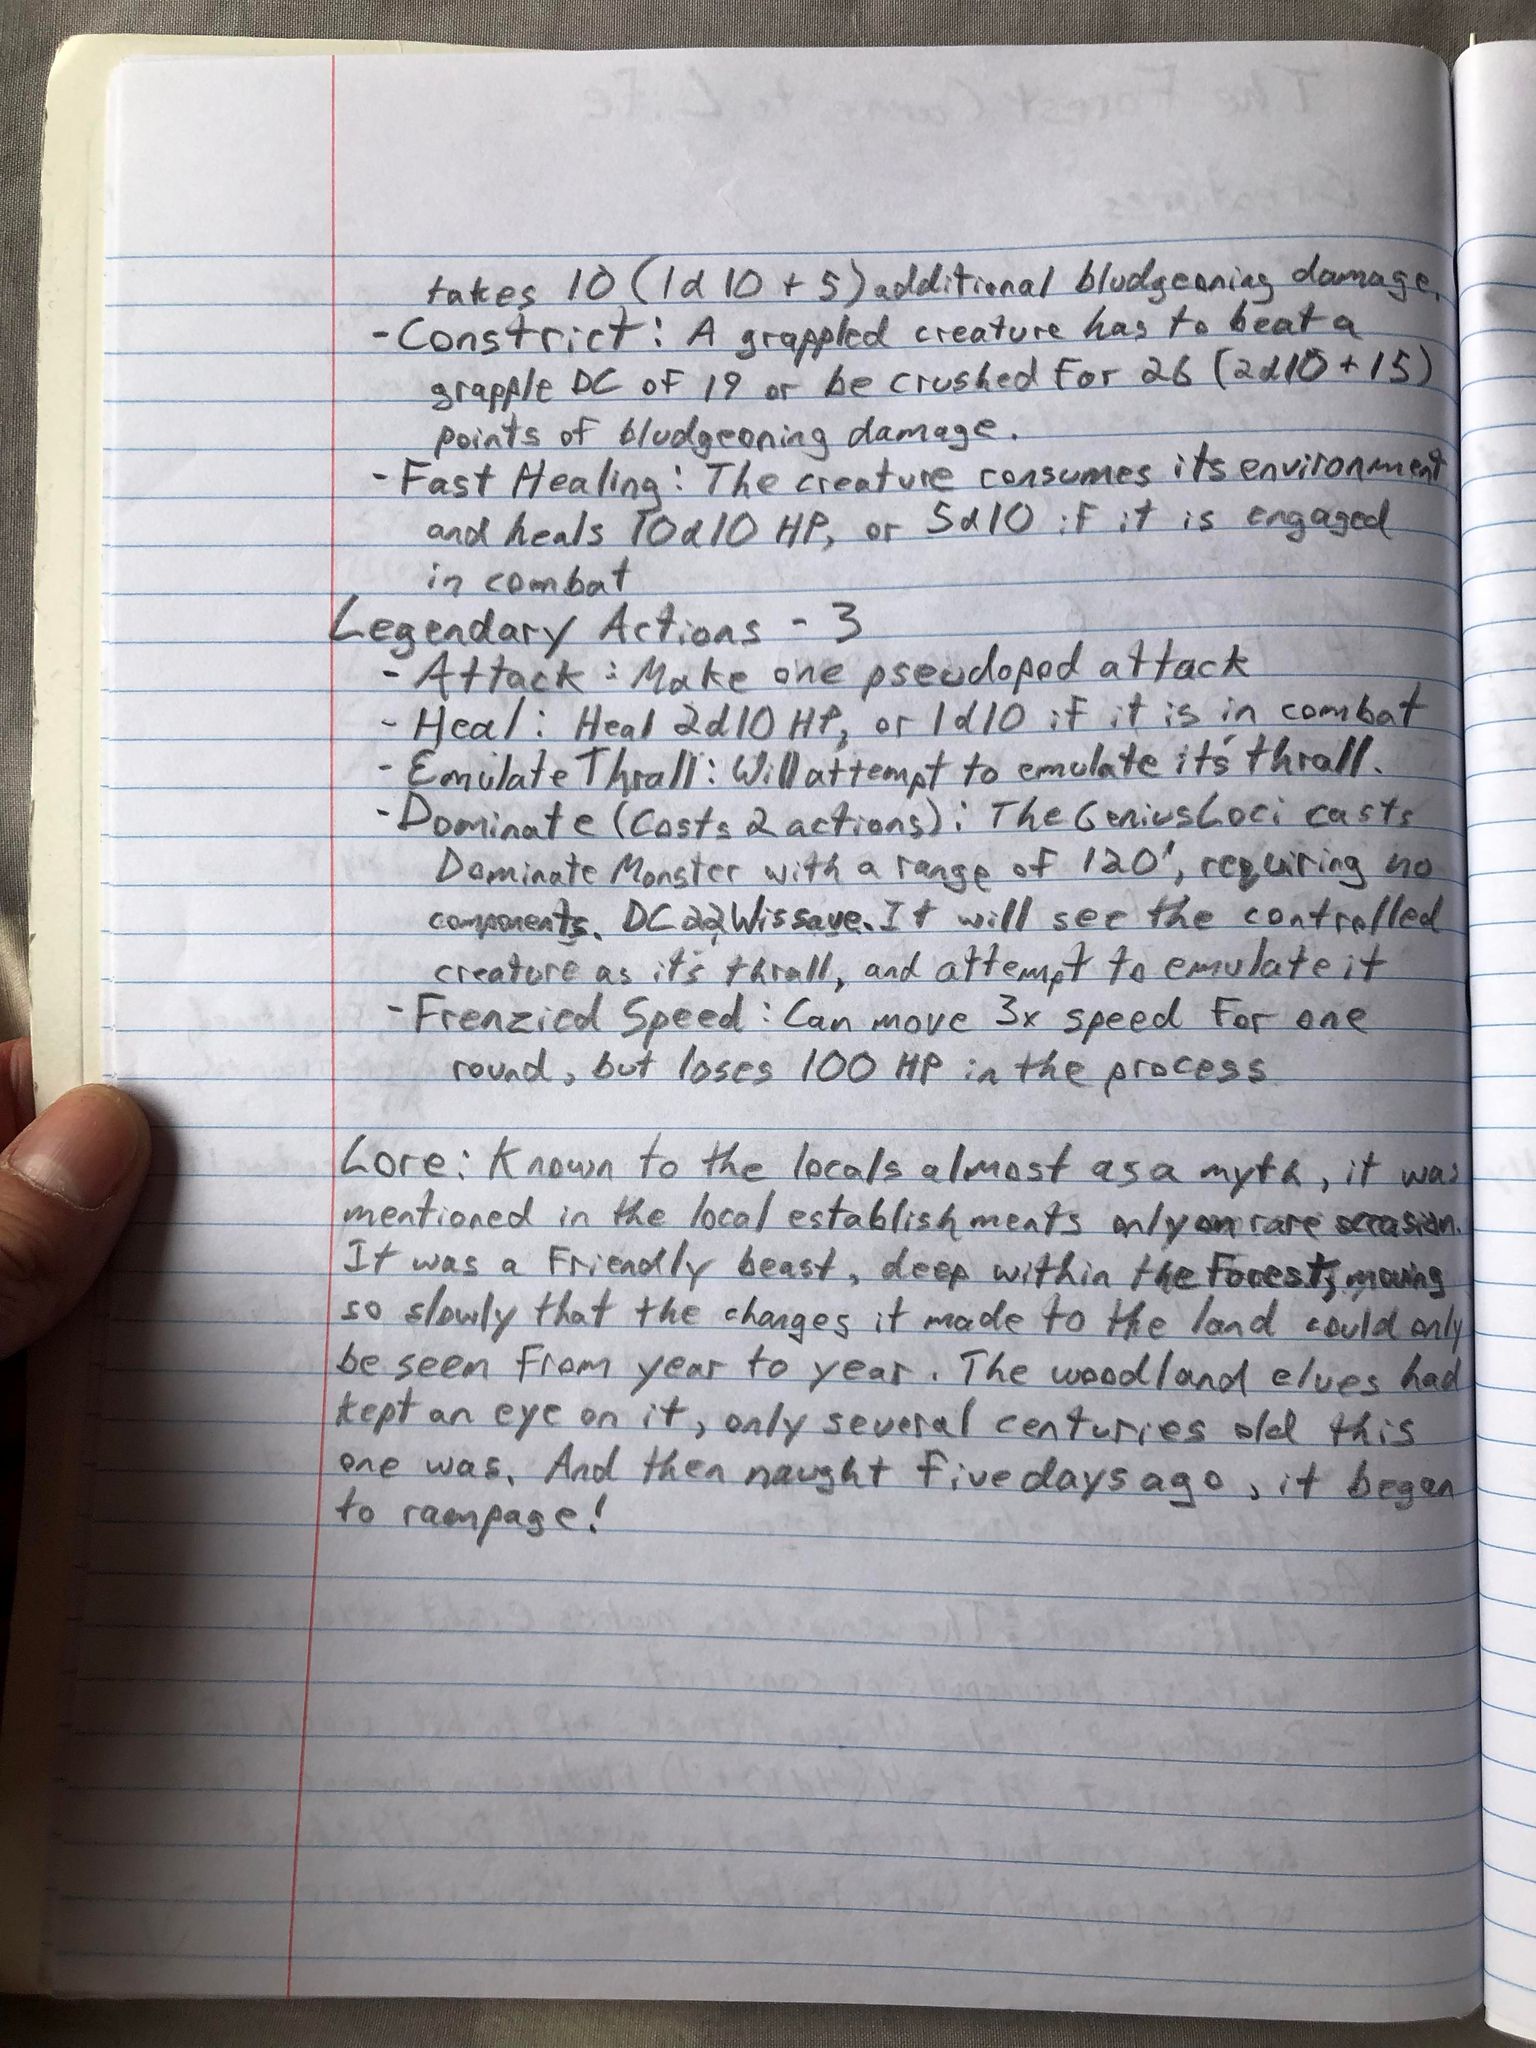 takes 10 (1d10 + 5) additional bludgeoning damage.
- Constrict: A grappled creature has to beat a
grapple DC of 19 or be crushed for 26 (2d10 + 15)
points of bludgeoning damage.
- Fast Healing: The creature consumes its environment
and heals 10d10 HP, or 5d10 if it is engaged
in combat
Legendary Actions - 3
- Attack: Make one pseudopod attack
- Heal: Heal 2d10 HP, or 1d10 if it is in combat
- Emulate Thrall: Will attempt to emulate it's thrall.
- Dominate (Costs 2 actions): The Genius Loci casts
Dominate Monster with a range of 120', requiring no
components. DC 22 Wis save. It will see the controlled
creature as it's thrall, and attempt to emulate it
- Frenzied Speed: Can move 3x speed for one
round, but loses 100 HP in the process
Lore: Known to the locals almost as a myth, it was
mentioned in the local establishments only on rare occasion.
It was a friendly beast, deep within the forest, moving
so slowly that the changes it made to the land could only
be seen from year to year. The woodland elves had
kept an eye on it, only several centuries old this
one was. And then naught five days ago, it began
to rampage!